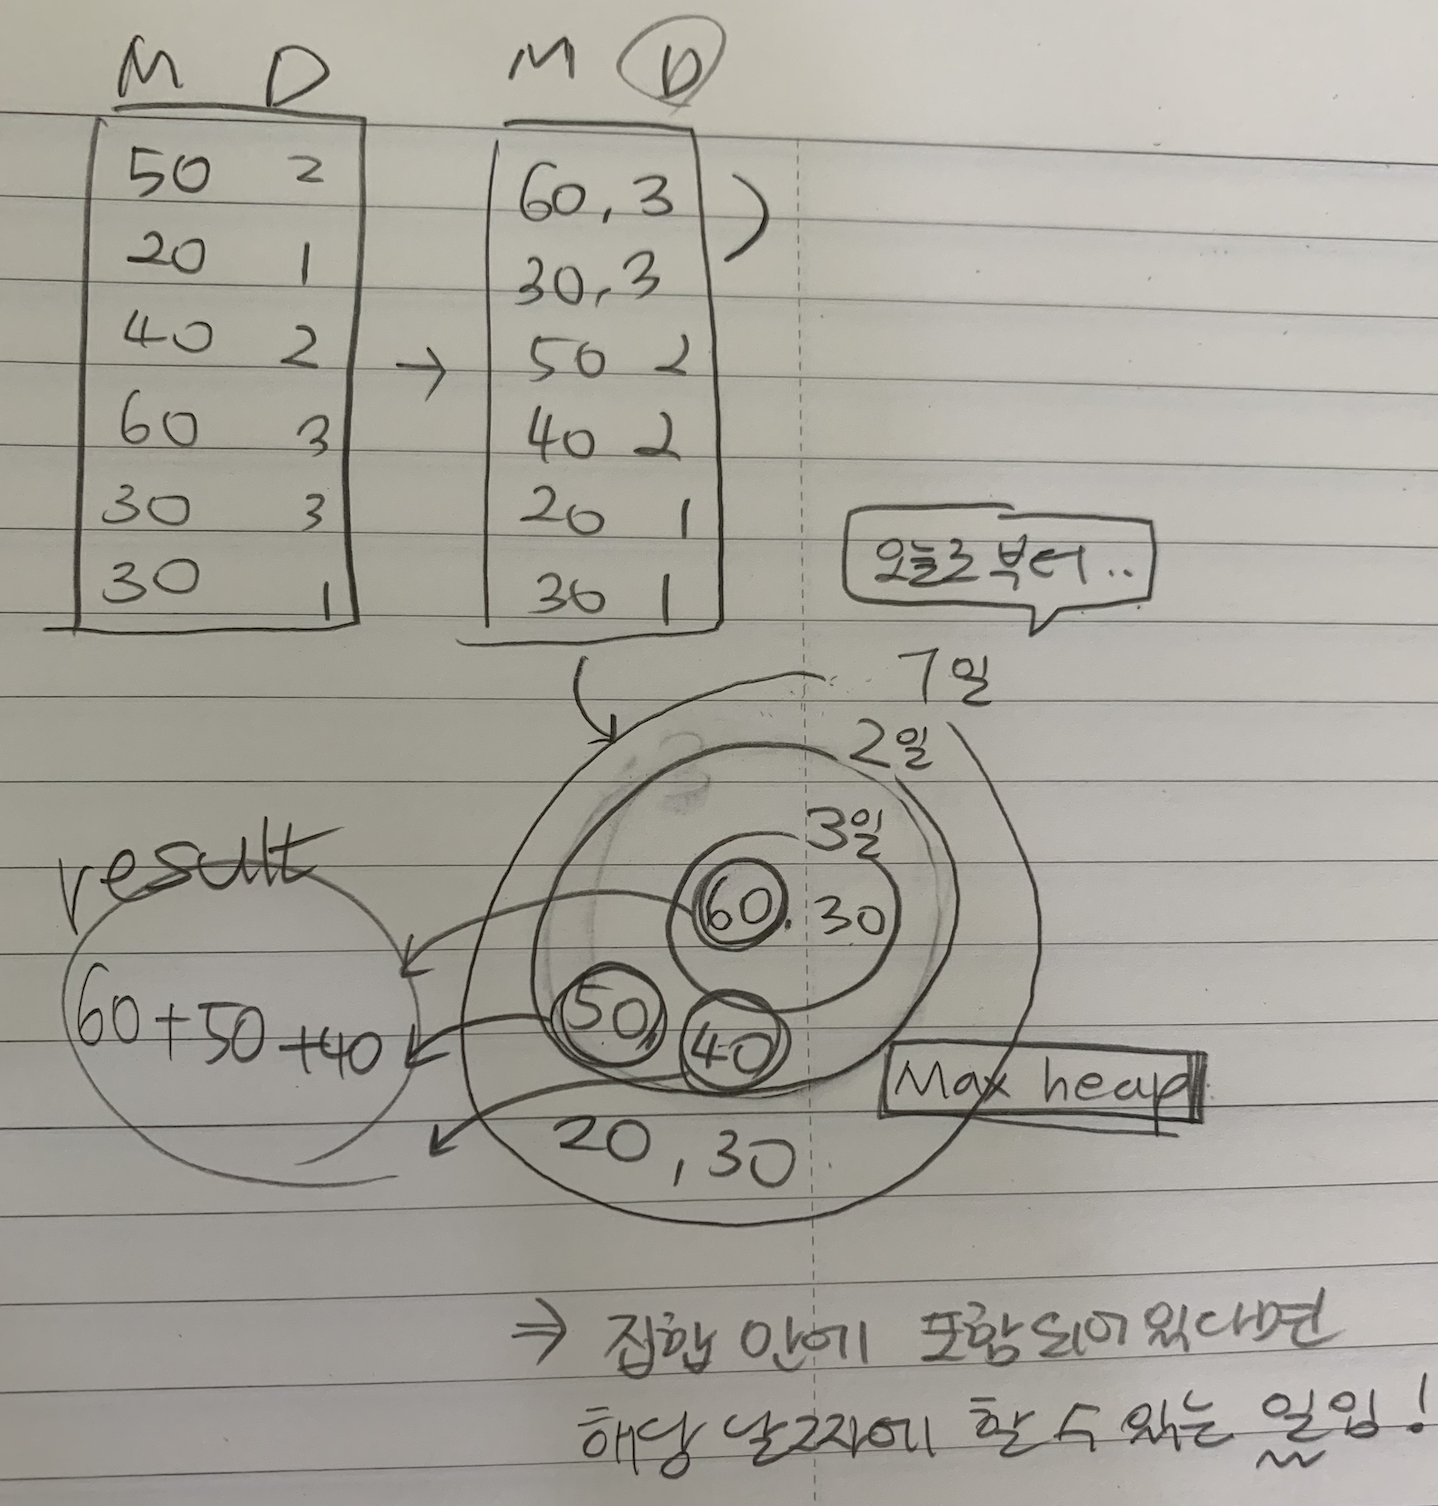 M D
50 2
20 1
40 2
60 3
30 3
30 1
→
M D
60, 3
30, 3
50 2
40 2
20 1
30 1
오늘로부터..
7일
2일
3일
60. 30
50, 40
20, 30
result
60+50+40
Max heap
⇒ 집합 안에 포함되어있다면
해당 날짜에 할 수 있는 일임!